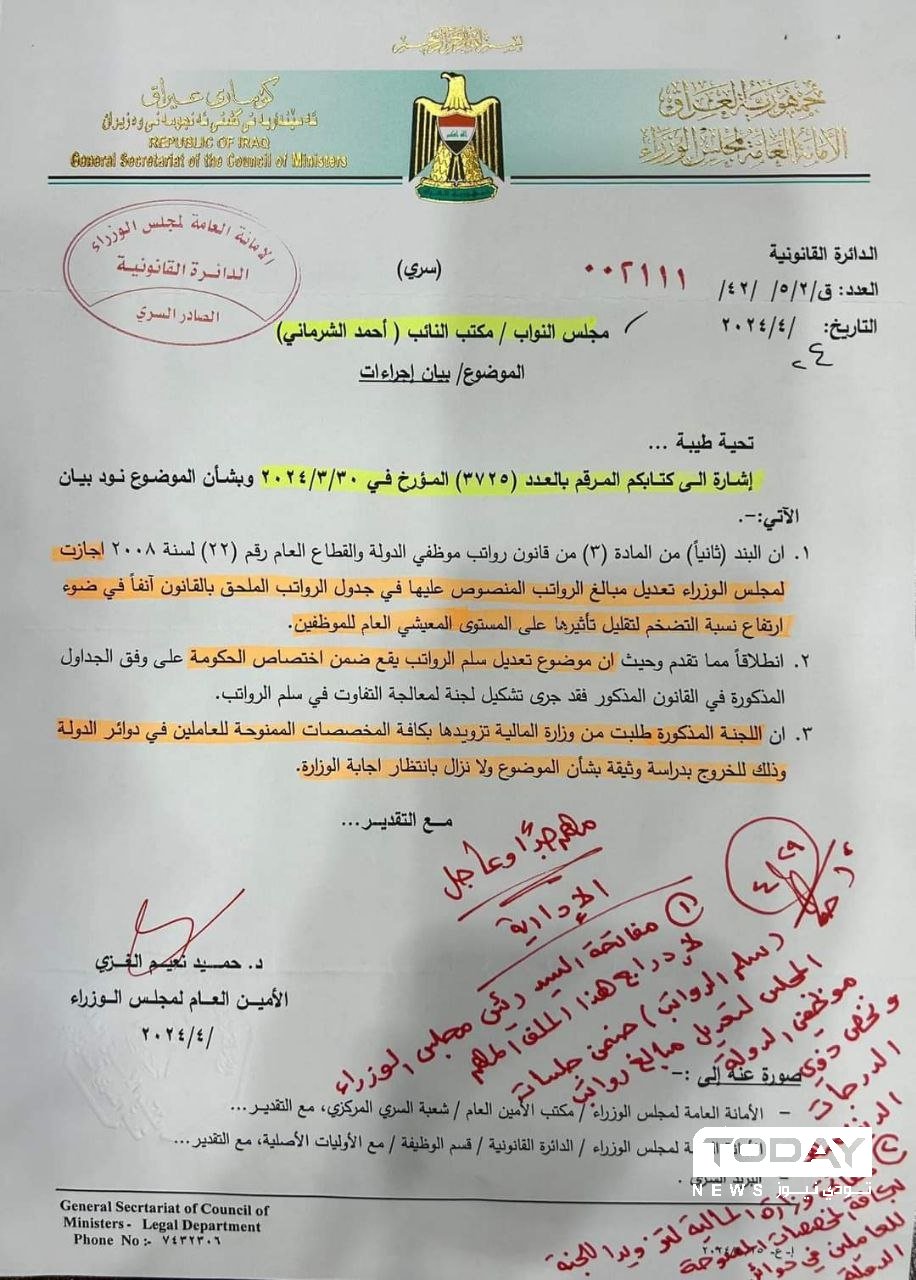 بسم الله الرحمن الرحيم
جمهورية العراق
الأمانة العامة لمجلس الوزراء
كۆماری عیراق
REPUBLIC OF IRAQ
General Secretariat of the Council of Ministers
الامانة العامة لمجلس الوزراء
الدائرة القانونية
الصادر السري
الدائرة القانونية
(سري)
٠٠٢١١١
العدد: ق/٥/٢/ ٤٢/
التاريخ: /٢٠٢٤/٤
٢٤
مجلس النواب / مكتب النائب ( أحمد الشرماني)
الموضوع/ بيان إجراءات
تحية طيبة ...
إشارة الى كتابكم المرقم بالعدد (٣٧٢٥) المؤرخ في ٢٠٢٤/٣/٣٠ وبشأن الموضوع نود بيان
الآتي:-.
١. ان البند (ثانياً) من المادة (٣) من قانون رواتب موظفي الدولة والقطاع العام رقم (٢٢) لسنة ٢٠٠٨ اجازت
لمجلس الوزراء تعديل مبالغ الرواتب المنصوص عليها في جدول الرواتب الملحق بالقانون آنفاً في ضوء
ارتفاع نسبة التضخم لتقليل تأثيرها على المستوى المعيشي العام للموظفين.
٢. انطلاقاً مما تقدم وحيث ان موضوع تعديل سلم الرواتب يقع ضمن اختصاص الحكومة على وفق الجداول
المذكورة في القانون المذكور فقد جرى تشكيل لجنة لمعالجة التفاوت في سلم الرواتب.
٣. ان اللجنة المذكورة طلبت من وزارة المالية تزويدها بكافة المخصصات الممنوحة للعاملين في دوائر الدولة
وذلك للخروج بدراسة وثيقة بشأن الموضوع ولا نزال بانتظار اجابة الوزارة.
مـع التقديـر...
د. حميـد نعيـم الغـزي
الأمين العام لمجلس الـوزراء
/٢٠٢٤/٤
مهم جداً وعاجل
الإدارية
٤/٢٩
① مفاتحة السيد رئيس مجلس الوزراء
لإدراج هذا الملف المهم
(سلم الرواتب) ضمن جلسات
المجلس لتعديل مبالغ رواتب
موظفي الدولة
ونخص ذوي
الدرجات
صورة عنه إلى :-
– الأمانة العامة لمجلس الوزراء / مكتب الأمين العام / شعبة السري المركزي، مع التقدير...
– الأمانة العامة لمجلس الوزراء / الدائرة القانونية / قسم الوظيفة / مع الأوليات الأصلية، مع التقدير...
– البريد السري .
② وزارة المالية لتزويد اللجنة
بكافة المخصصات الممنوحة
للعاملين في دوائر
الدولة
TODAY
NEWS تودي نيوز
General Secrtariat of Council of
Ministers - Legal Department
Phone No :- ٧٤٣٢٣٠٦